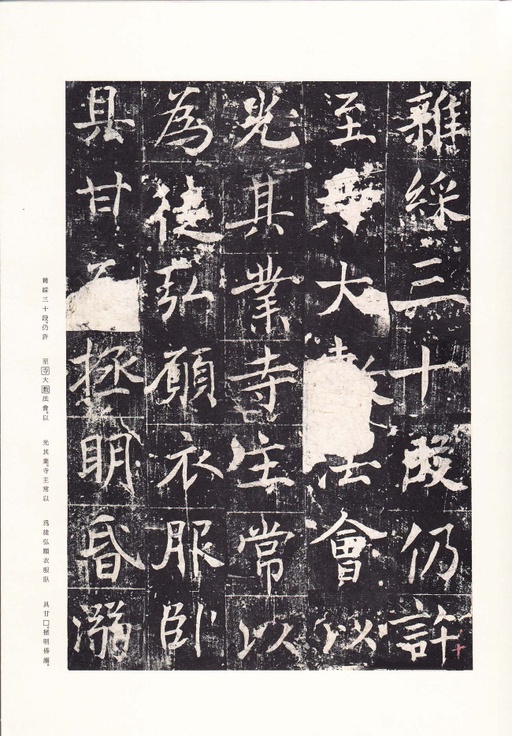 雜綵三十段仍許
至大法會以
光其業寺主常以
為徒弘願衣服卧
具甘拯明昏溺
雜綵三十段、仍許 至寺大敷法會、以 光其業、寺主常以 爲徒弘願衣服臥 具甘□、拯明昏溺。